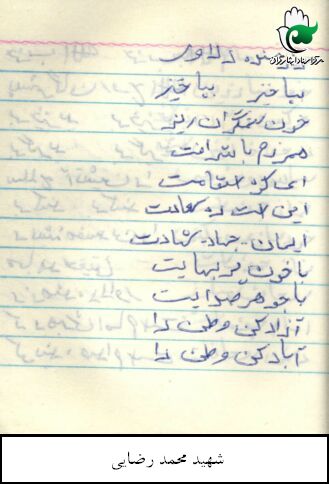 مرکز اسناد ایثارگران
رزمنده دلاور
بپاخیز بپاخیز
خون ستمگران ریز
همرزم با شرافت
ای کوه استقامت
این است ره سعادت
ایمان - جهاد - شهادت
با خون پر بهایت
با جوهر صدایت
آزاد کن وطن را
آباد کن وطن را
شهید محمد رضایی